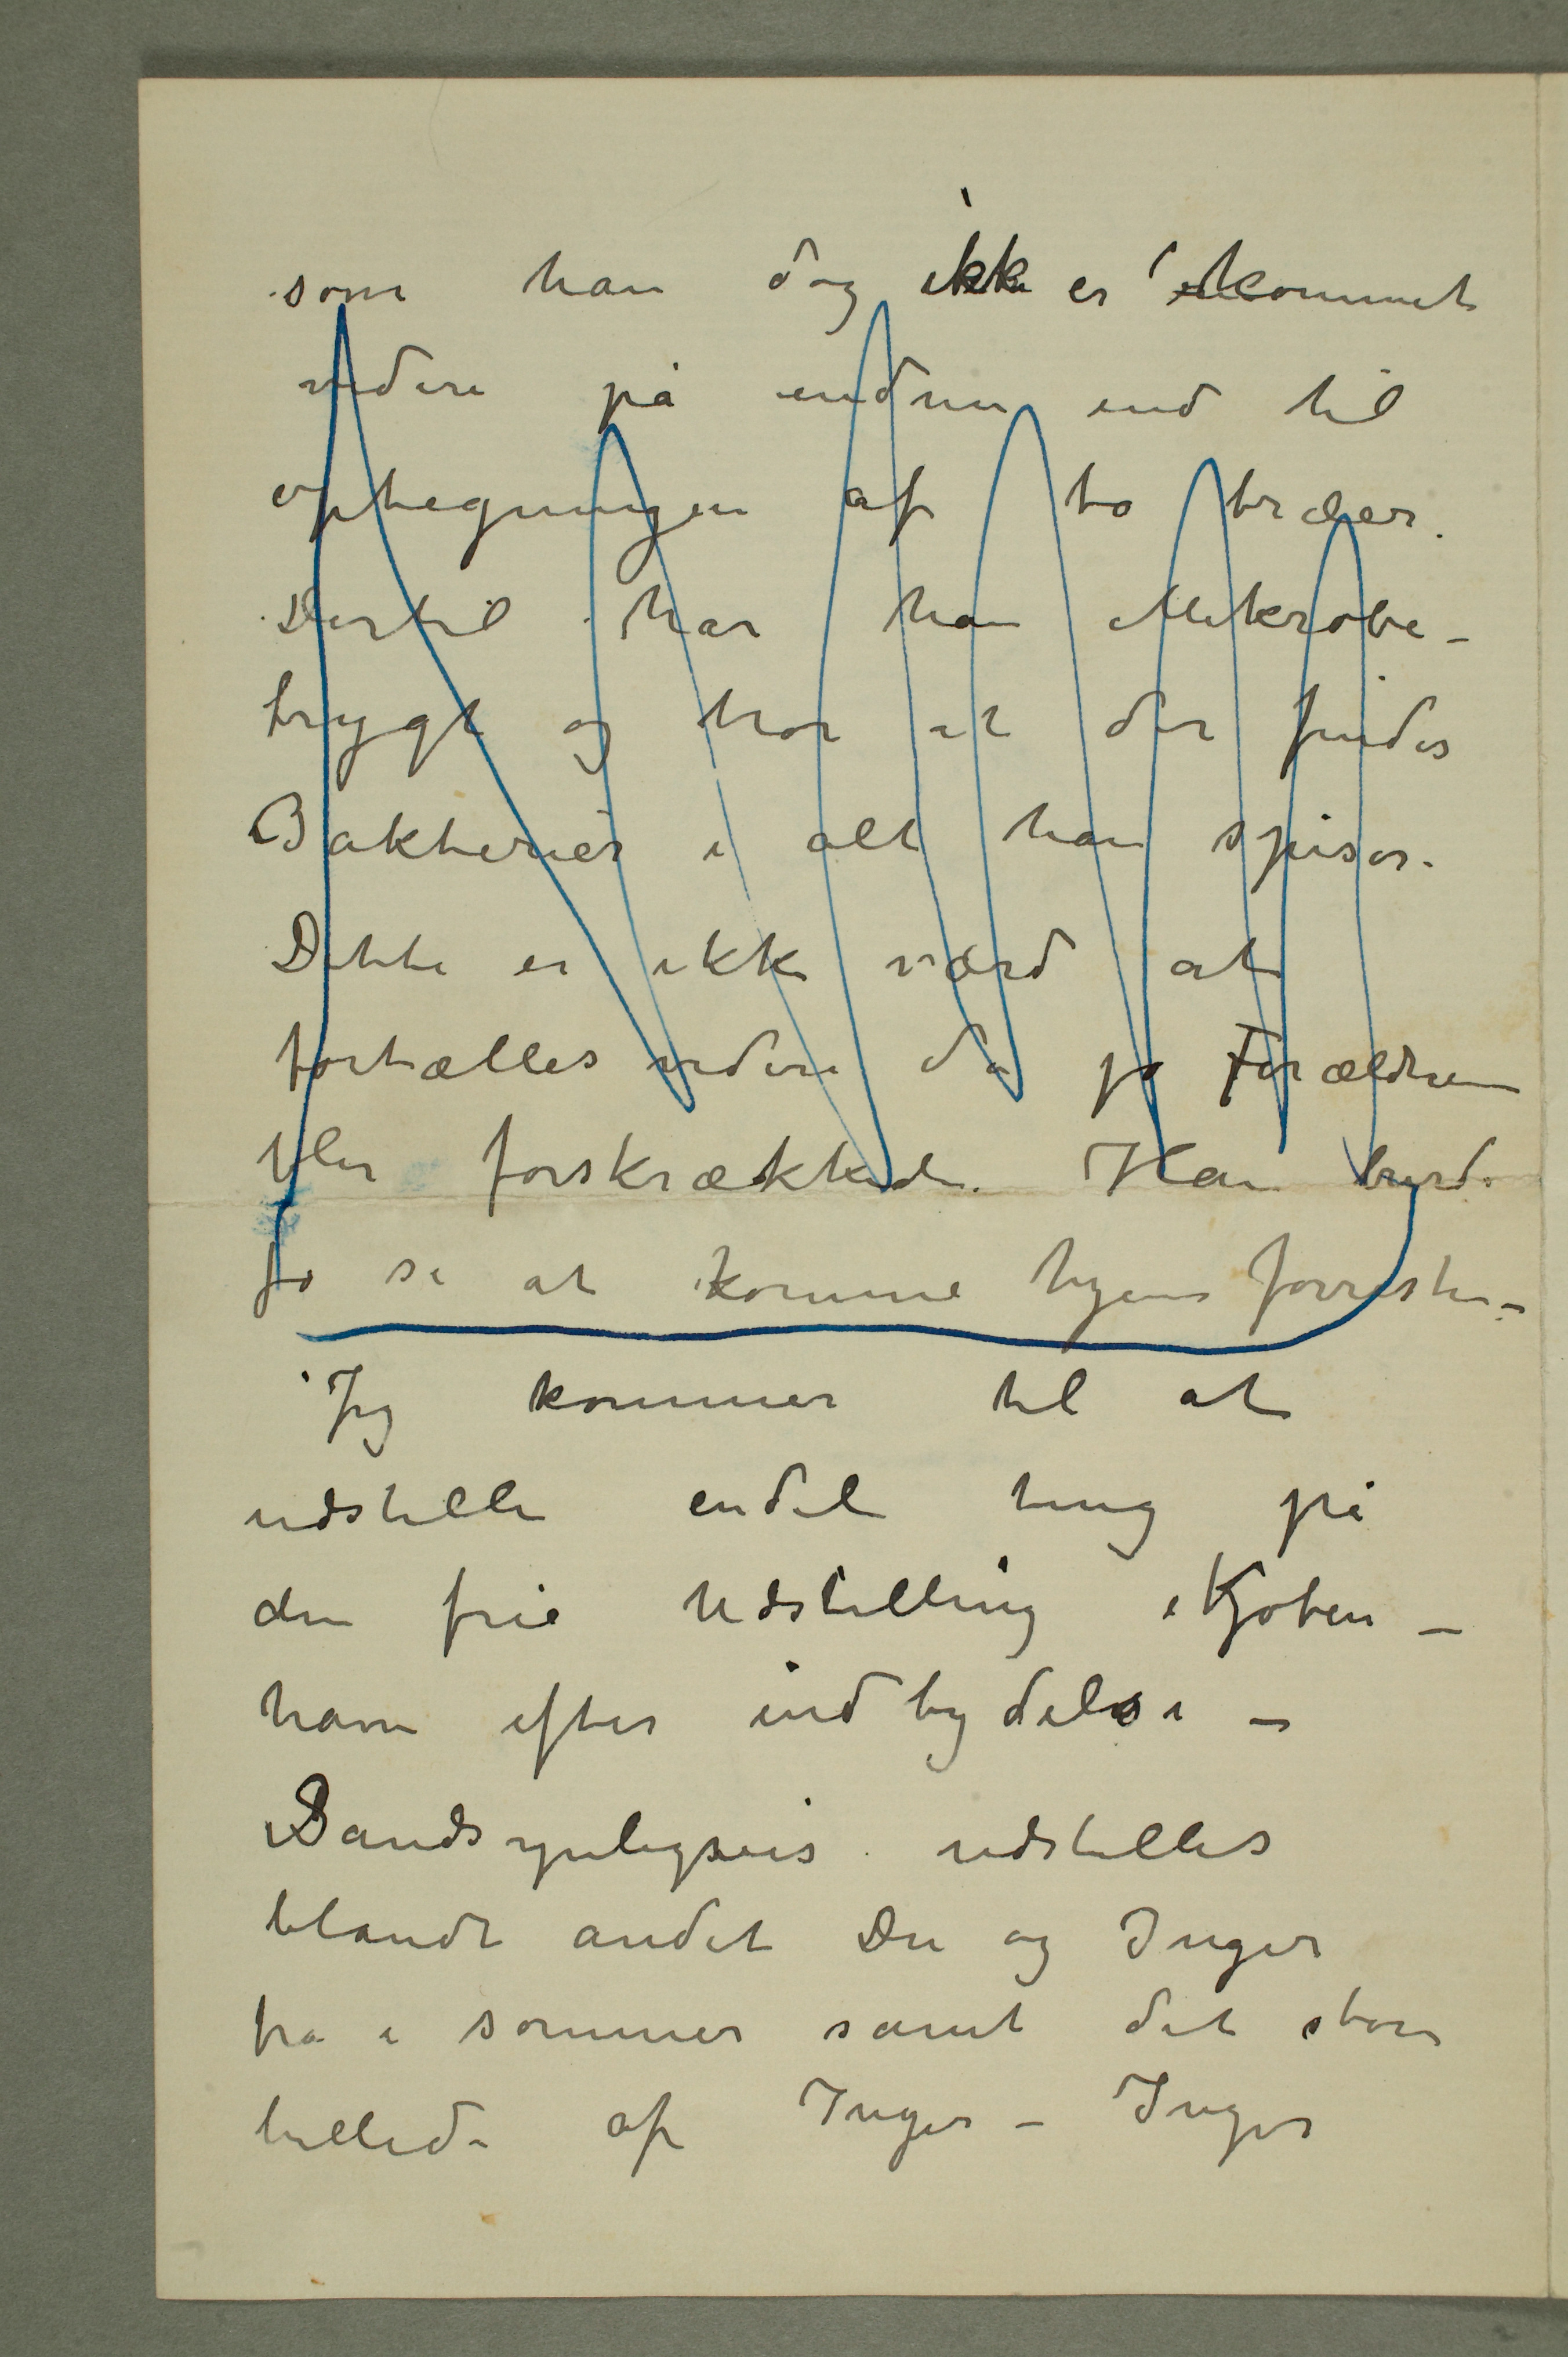 som han dog ikke er kommet
videre på endnu end til
optegningen af to træer.
Dertil har han Mikrobe–
frygt og tror at der findes
Bakterier i alt han spiser.
Dette er ikke værd at
fortælles videre da jo Forældrene
bler forskrækkede. Han burde
jo se at komme hjem forresten –
Jeg kommer til at
udstille endel ting på
den frie Udstilling i Kjøben –
havn efter indbydelse –
Sandsynligvis udstilles
blandt andet Du og Inger
fra i sommer samt det store
billede af Inger – Inger